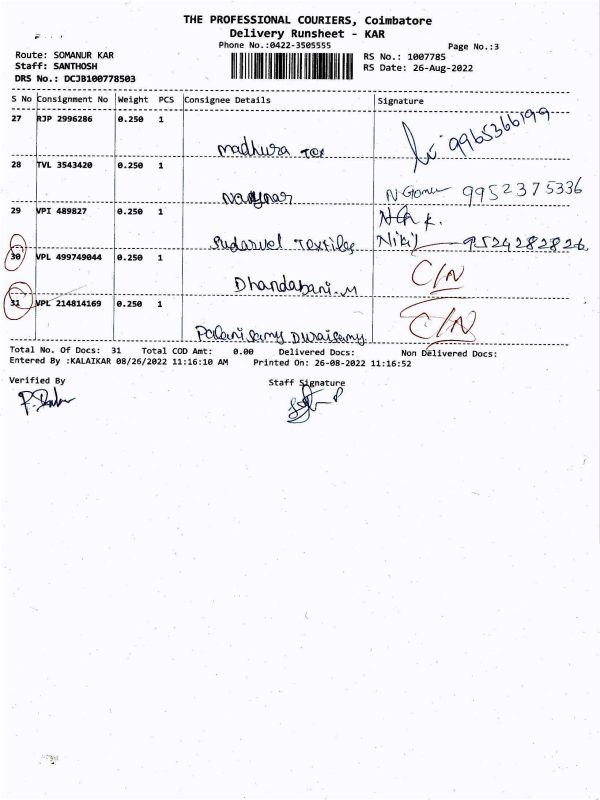 THE PROFESSIONAL COURIERS, Coimbatore
Delivery Runsheet - KAR
Phone No.:0422-3505555
Page No.:3
Route: SOMANUR KAR
RS No.: 1007785
Staff: SANTHOSH
RS Date: 26-Aug-2022
DRS No.: DCJB100778503
S No Consignment No Weight PCS Consignee Details Signature
27 RJP 2996286 0.250 1
madhura Tex 9965366199
28 TVL 3543420 0.250 1
9952375336
29 VPI 489827 0.250 1
Sudarvel Textiles Nikil 9524282826
30 VPL 499749044 0.250 1 C/N
Dhandabani.M
31 VPL 214814169 0.250 1 C/N
Palanisamy Duraisamy
Total No. Of Docs: 31 Total COD Amt: 0.00 Delivered Docs: Non Delivered Docs:
Entered By :KALAIKAR 08/26/2022 11:16:10 AM Printed On: 26-08-2022 11:16:52
Verified By Staff Signature